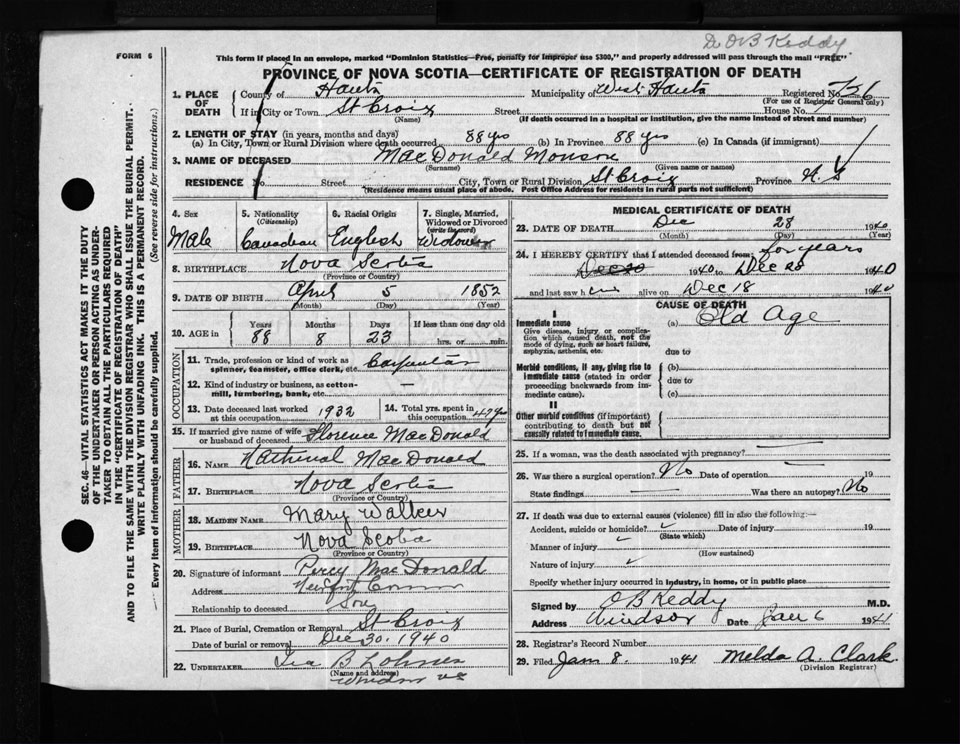 Dr OB Keddy
FORM 6
This form if placed in an envelope, marked "Dominion Statistics—Free, penalty for improper use $300," and properly addressed will pass through the mail "FREE"
PROVINCE OF NOVA SCOTIA—CERTIFICATE OF REGISTRATION OF DEATH
1. PLACE OF DEATH County of Hants Municipality of West Hants Registered No. 736
(For use of Registrar General only)
If in City or Town St Croix Street House No.
(Name) (If death occurred in a hospital or institution, give the name instead of street and number)
2. LENGTH OF STAY (in years, months and days)
(a) In City, Town or Rural Division where death occurred 88 yrs (b) In Province 88 yrs (c) In Canada (if immigrant)
3. NAME OF DECEASED MacDonald Monson
(Surname) (Given name or names)
RESIDENCE No. Street City, Town or Rural Division St Croix Province N. S
(Residence means usual place of abode. Post Office Address for residents in rural parts not sufficient)
4. Sex Male
5. Nationality (Citizenship) Canadian
6. Racial Origin English
7. Single, Married, Widowed or Divorced (write the word) Widower
8. BIRTHPLACE Nova Scotia
(Province or Country)
9. DATE OF BIRTH April 5 1852
(Month) (Day) (Year)
10. AGE in Years 88 Months 8 Days 23 If less than one day old hrs. or min.
OCCUPATION
11. Trade, profession or kind of work as spinner, teamster, office clerk, etc. Carpenter
12. Kind of industry or business, as cotton-mill, lumbering, bank, etc. —
13. Date deceased last worked at this occupation 1932
14. Total yrs. spent in this occupation
15. If married give name of wife or husband of deceased Florence MacDonald
FATHER
16. NAME MacDonald
17. BIRTHPLACE Nova Scotia
(Province or Country)
MOTHER
18. MAIDEN NAME Mary Walker
19. BIRTHPLACE Nova Scotia
(Province or Country)
20. Signature of informant Percy MacDonald
Address Newport
Relationship to deceased Son
21. Place of Burial, Cremation or Removal St Croix
Date of burial or removal Dec 30. 1940
22. UNDERTAKER Ira B Lohnes
(Name and address)
Windsor NS
MEDICAL CERTIFICATE OF DEATH
23. DATE OF DEATH Dec 28 1940
(Month) (Day) (Year)
24. I HEREBY CERTIFY that I attended deceased from: for years
Dec 20 1940 to Dec 28 1940
and last saw h alive on Dec 18 1940
CAUSE OF DEATH
I
Immediate cause
Give disease, injury or complication which caused death, not the mode of dying, such as heart failure, asphyxia, asthenia, etc.
(a) Old Age
due to
Morbid conditions, if any, giving rise to immediate cause (stated in order proceeding backwards from immediate cause).
(b)
due to
(c)
II
Other morbid conditions (if important) contributing to death but not causally related to immediate cause.
25. If a woman, was the death associated with pregnancy? —
26. Was there a surgical operation? No Date of operation 19
State findings — Was there an autopsy? No
27. If death was due to external causes (violence) fill in also the following:—
Accident, suicide or homicide? Date of injury 19
(State which)
Manner of injury
(How sustained)
Nature of injury
Specify whether injury occurred in industry, in home, or in public place
Signed by OB Keddy M.D.
Address Windsor Date Jan 6 1941
28. Registrar's Record Number
29. Filed Jan 8. 1941 Melda A. Clark
(Division Registrar)
SEC. 46—VITAL STATISTICS ACT MAKES IT THE DUTY
OF THE UNDERTAKER OR PERSON ACTING AS UNDER-
TAKER TO OBTAIN ALL THE PARTICULARS REQUIRED
IN THE "CERTIFICATE OF REGISTRATION OF DEATH"
AND TO FILE THE SAME WITH THE DIVISION REGISTRAR WHO SHALL ISSUE THE BURIAL PERMIT.
WRITE PLAINLY WITH UNFADING INK. THIS IS A PERMANENT RECORD.
Every item of information should be carefully supplied. (See reverse side for instructions.)